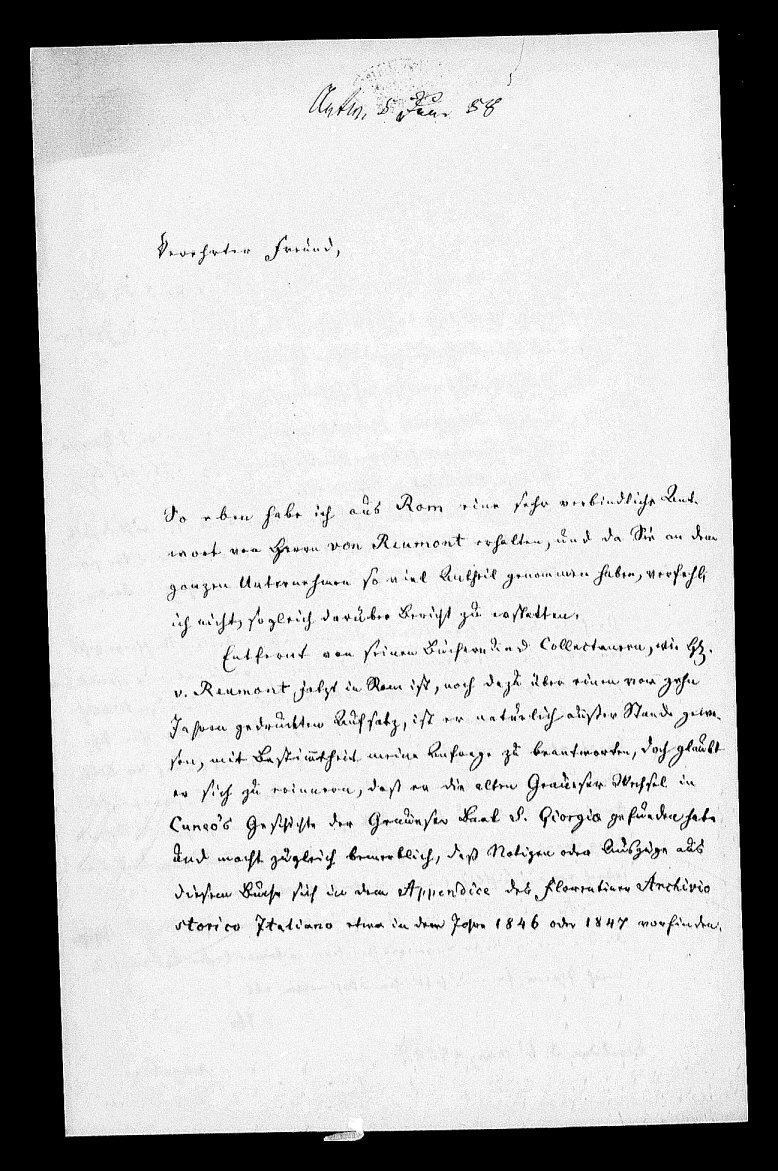 Antw. 5 Juni 58
Verehrter Freund,
So eben habe ich aus Rom eine sehr verbindliche Ant-
wort von Herrn von Reumont erhalten, und da Sie an dem
ganzen Unternehmen so viel Antheil genommen haben, verfehle
ich nicht, sogleich darüber Bericht zu erstatten.
Entfernt von seinen Büchern und Collectaneen, wie H.
v. Reumont jetzt in Rom ist, noch dazu über einen vor zehn
Jahren gedruckten Aufsatz, ist er natürlich außer Stande gewe-
sen, mit Bestimtheit meine Anfrage zu beantworten, doch glaubt
er sich zu erinnern, daß er die alten Genueser Wechsel in
Cuneo's Geschichte der Genueser Bank S. Giorgio gefunden habe
und macht zugleich bemerklich, daß Notizen oder Auszüge aus
diesem Buche sich in dem Appendice des Florentiner Archivio
storico Italiano etwa in dem Jahre 1846 oder 1847 vorfinden.